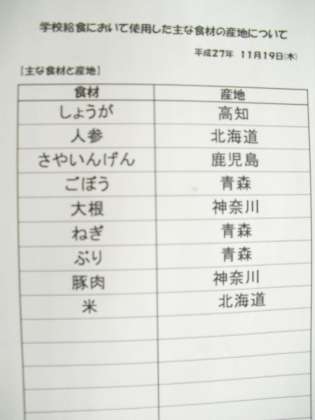 学校給食において使用した主な食材の産地について
平成27年 11月19日(木)
[主な食材と産地]
食材 産地
しょうが 高知
人参 北海道
さやいんげん 鹿児島
ごぼう 青森
大根 神奈川
ねぎ 青森
ぶり 青森
豚肉 神奈川
米 北海道